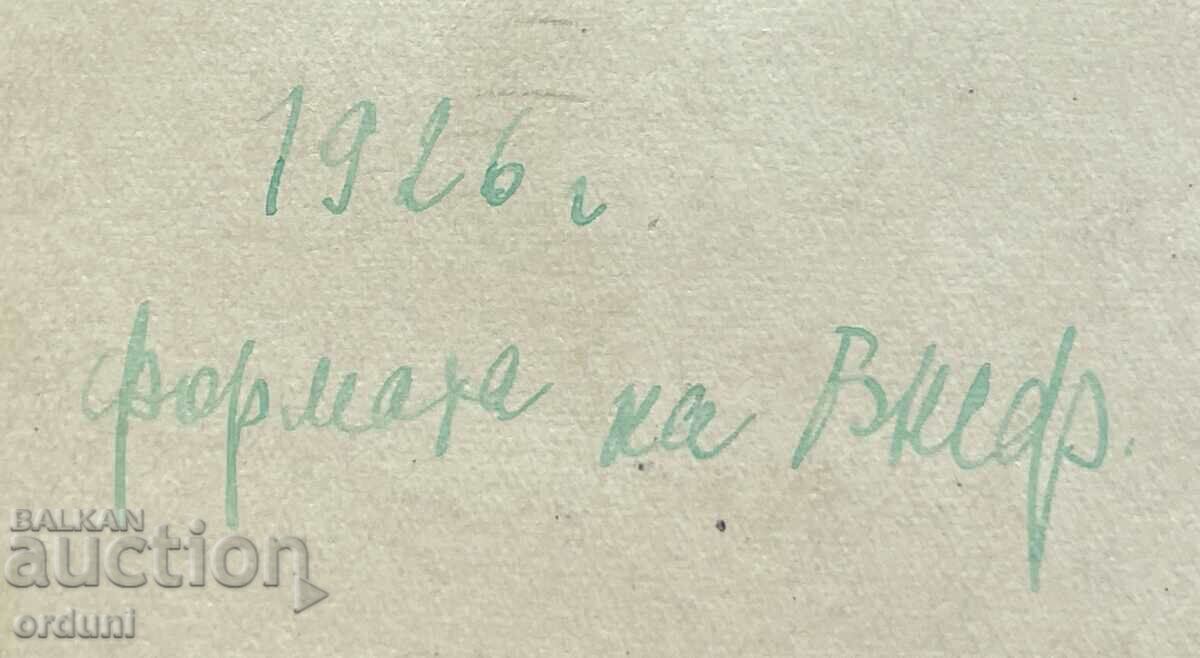 1926 г.
формата на ВНЕФ.
BALKAN
auction
orduni